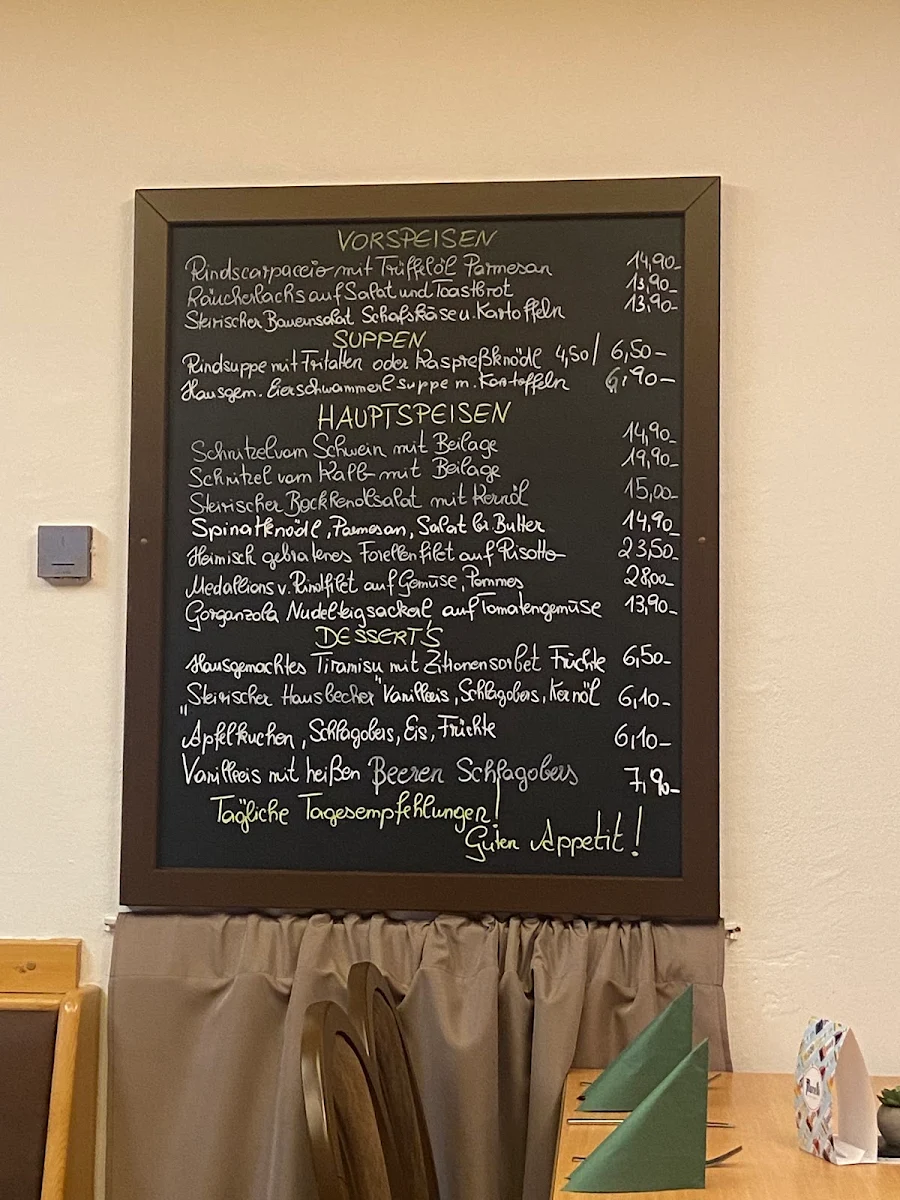 VORSPEISEN
Rindscarpaccio mit Trüffelöl Parmesan 14,90-
Räucherlachs auf Salat und Toastbrot 13,90-
Steirischer Bauernsalat Schafskäse u. Kartoffeln 13,90-
SUPPEN
Rindsuppe mit Fritatten oder Kaspreßknödl 4,50/ 6,50-
Hausgem. Eierschwammerlsuppe m. Kartoffeln 6,90-
HAUPTSPEISEN
Schnitzel vom Schwein mit Beilage 14,90-
Schnitzel vom Kalb mit Beilage 19,90-
Steirischer Backhendlsalat mit Kernöl 15,00-
Spinatknödl, Parmesan, Salat br. Butter 14,90
Heimisch gebratenes Forellenfilet auf Risotto 23,50-
Medallions v. Rindfilet auf Gemüse, Pommes 28,00-
Gorganzola Nudelteigsackerl auf Tomatengemüse 13,90-
DESSERT'S
Hausgemachtes Tiramisu mit Zitronensorbet Früchte 6,50-
"Steirischer Hausbecher" Vanilleeis, Schlagobers, Kernöl 6,10-
Apfelkuchen, Schlagobers, Eis, Früchte 6,10-
Vanilleeis mit heißen Beeren Schlagobers 7,90-
Tägliche Tagesempfehlungen!
Guten Appetit!